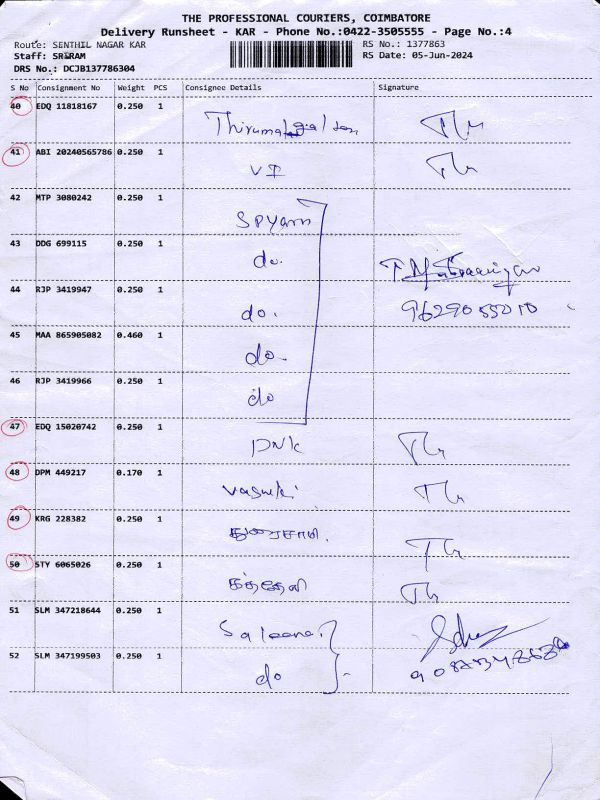 THE PROFESSIONAL COURIERS, COIMBATORE
Delivery Runsheet - KAR - Phone No.:0422-3505555 - Page No.:4
Route: SENTHIL NAGAR KAR
RS No.: 1377863
Staff: SRIRAM
RS Date: 05-Jun-2024
DRS No.: DCJB137786304
S No Consignment No Weight PCS Consignee Details Signature
40 EDQ 11818167 0.250 1
41 ABI 20240565786 0.250 1 VI
42 MTP 3080242 0.250 1 SPYarn
43 DDG 699115 0.250 1 do.
44 RJP 3419947 0.250 1 do.
45 MAA 865905082 0.460 1 do.
46 RJP 3419966 0.250 1 do
47 EDQ 15020742 0.250 1
48 DPM 449217 0.170 1 Vasuki
49 KRG 228382 0.250 1 துரைசாமி.
50 STY 6065026 0.250 1
51 SLM 347218644 0.250 1
52 SLM 347199503 0.250 1 do